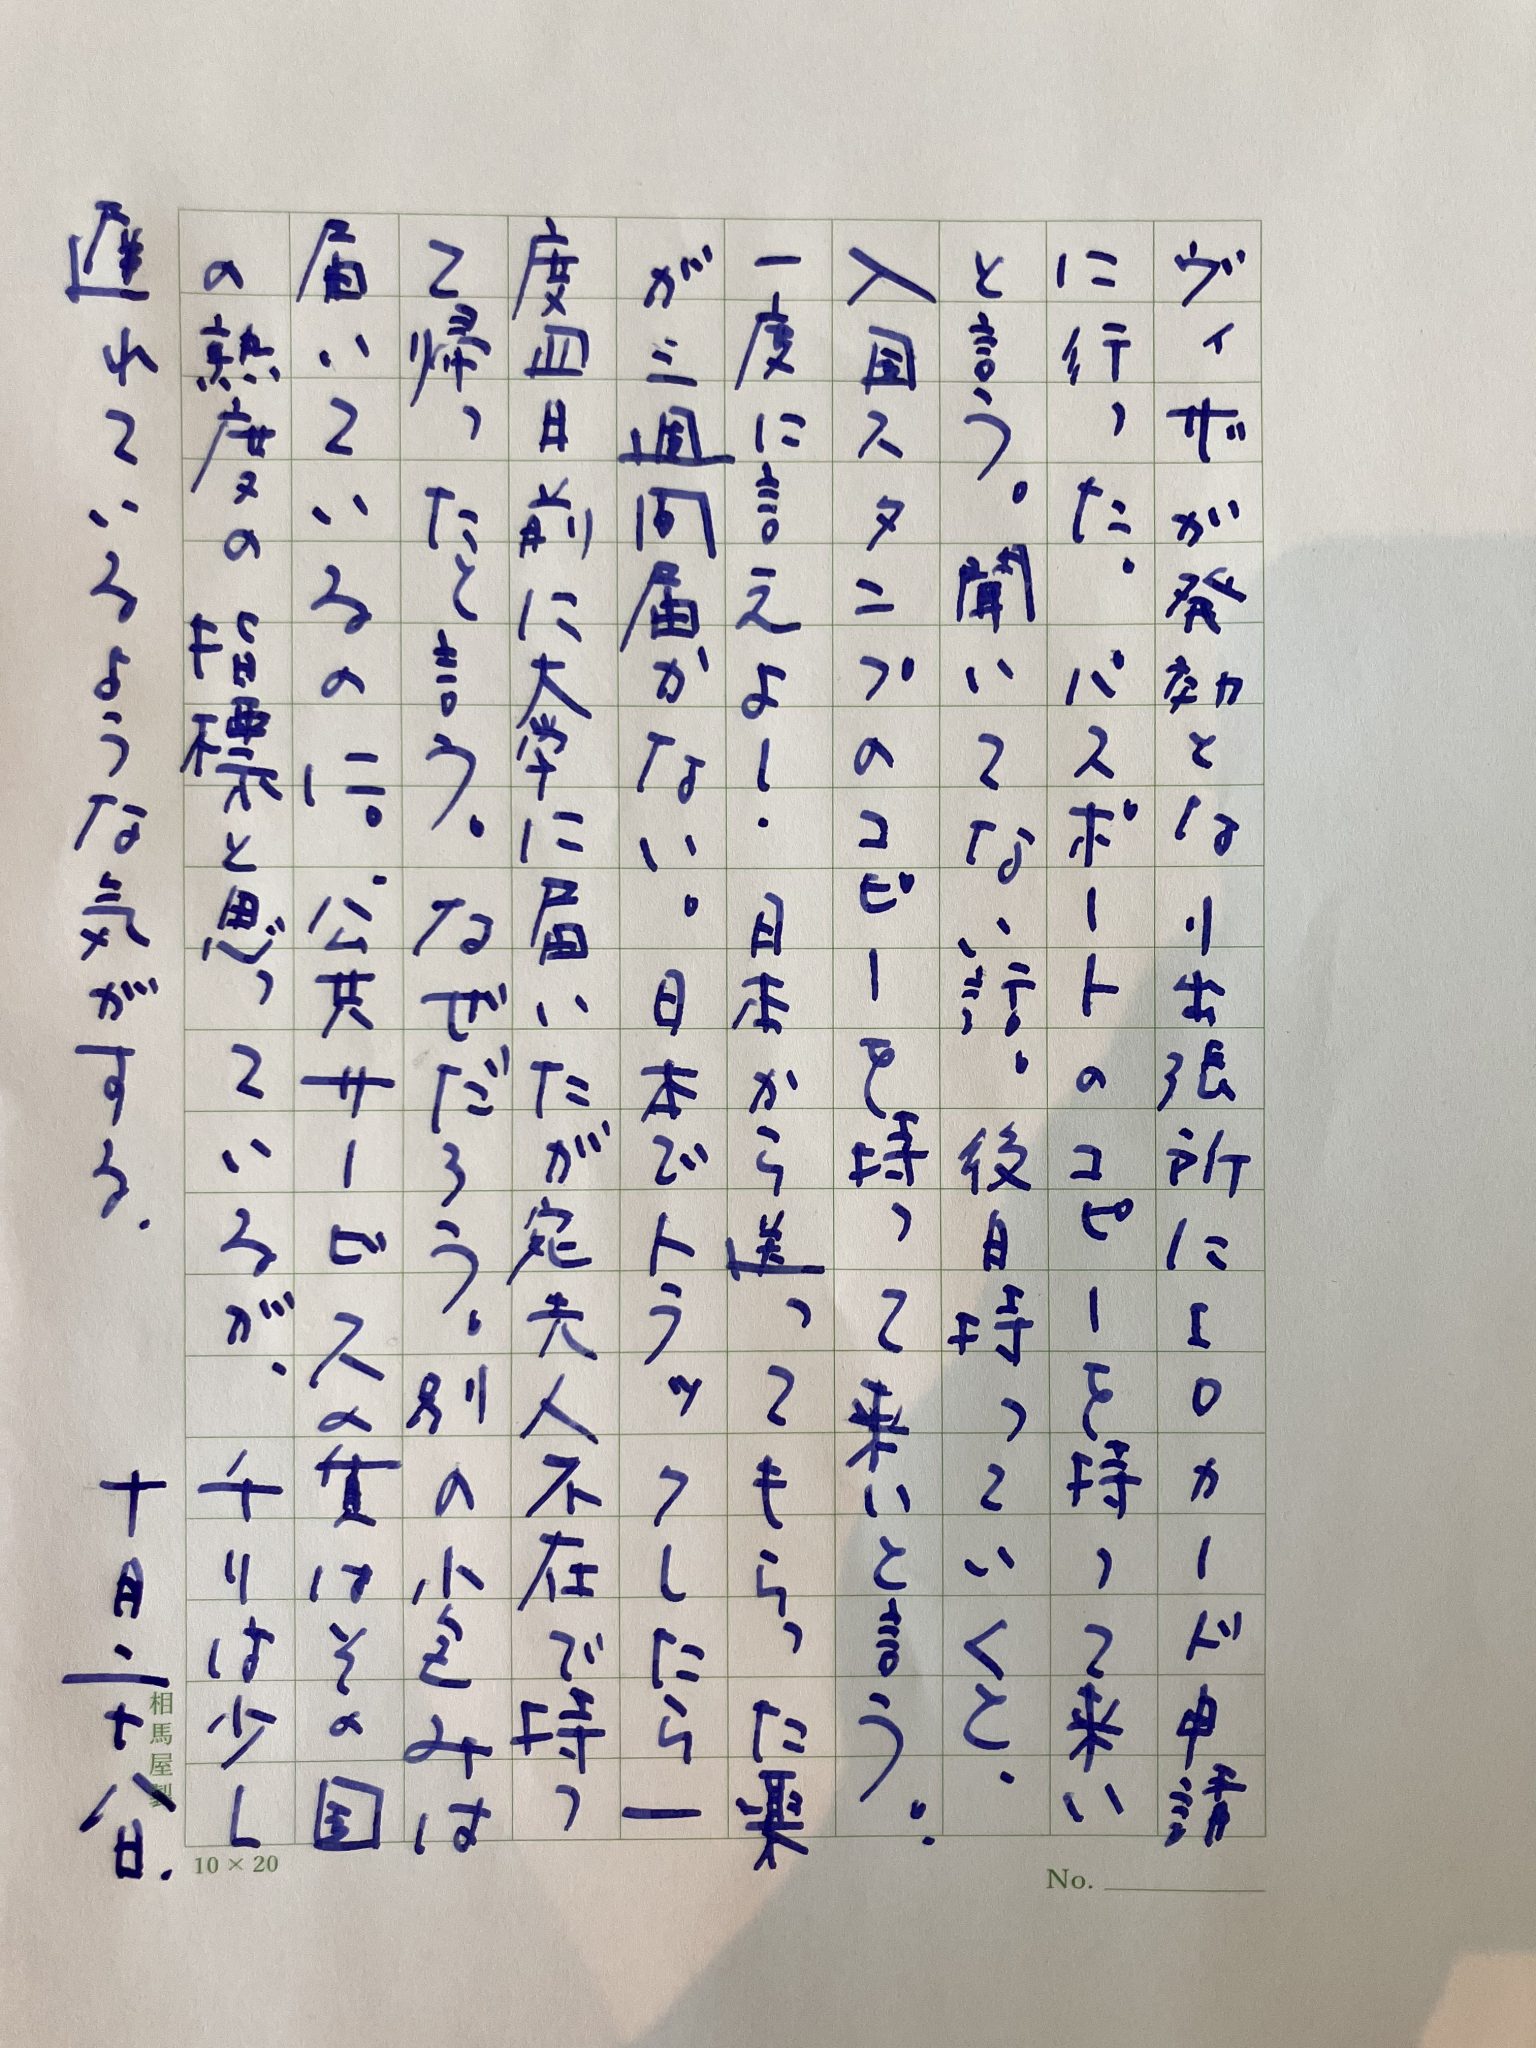 ヴィザが発効となり出張所にIDカード申請
に行った。パスポートのコピーを持って来い
と言う。聞いてない訝。後日持っていくと、
入国スタンプのコピーを持って来いと言う。
一度に言えよ！.日本から送ってもらった薬
が三週間届かない。日本でトラックしたら一
度四日前に大学に届いたが宛先人不在で持っ
て帰ったと言う。なぜだろう。別の小包みは
届いているのに。公共サービスの質はその国
の熟度の指標と思っているが、千りは少し
遅れているような気がする。十月二十八日.
相馬屋製
10×20
No.